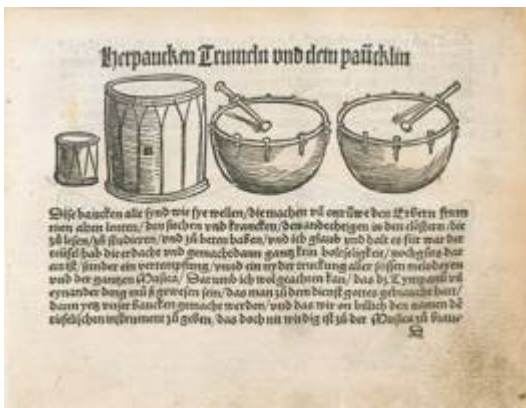 Herpaucken Trumeln vnd dem paücklin
Dise baucken alle synd wie sye wellen/die machen vil onrüwe den Erbern frum
men alten leuten/den siechen vnd krancken/den andechtigen in den clöstern/die
zů lesen/zů studieren/vnd zů beten haben/vnd ich glaub vnd halt es für war der
teüfel hab die erdacht vnd gemacht dann gantz kein holtseligkeit/noch gůts dar
an ist/sunder ein vertempfung/vnnd ein nyder truckung aller süssen melodeyen
vnd der gantzen Musica/Darumb ich wol geachten kan/das dz Tympanū vil
eynander ding můß gewesen sein/das man zů dem dienst gottes gebraucht hatt/
dann yetz vnser baucken gemacht werden/vnd das wir on billich den namen dē
teüfelischen instrument zů geben/das doch nit wirdig ist zů der Musica zů brau-